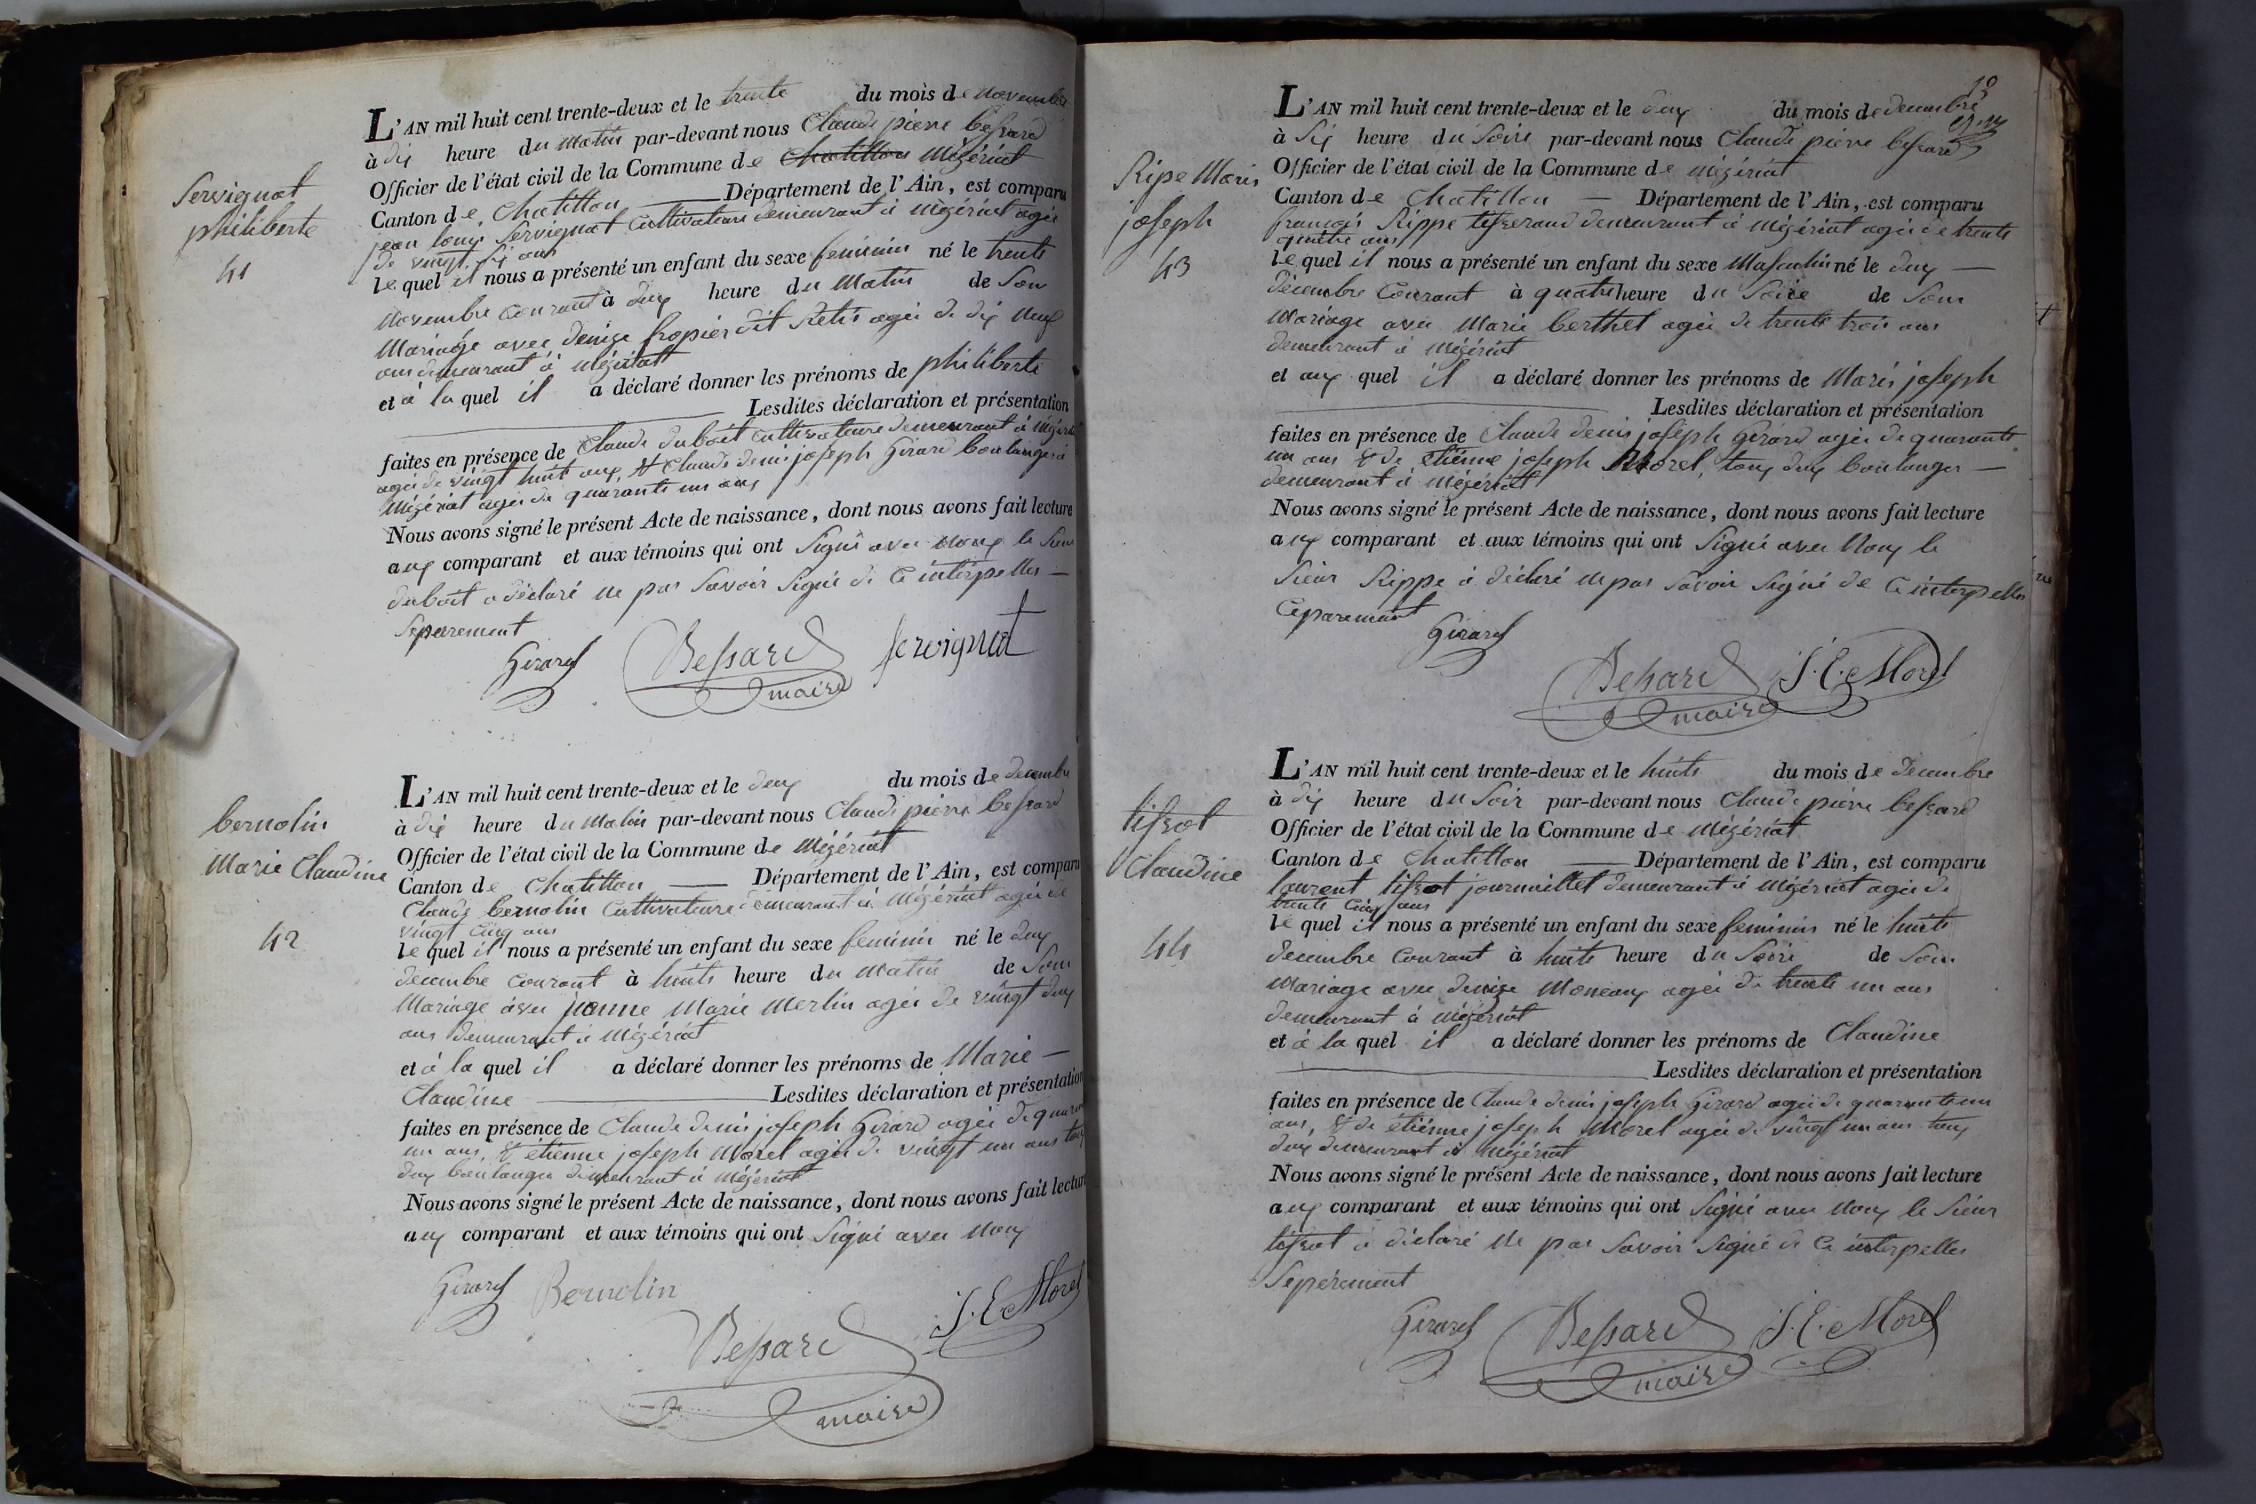 Servignat
philiberte
41
L'AN mil huit cent trente-deux et le trente du mois de novembre
à dix heure du Matin par-devant nous Claude pierre bessard
Officier de l'état civil de la Commune de Chatillon Mézériat
Canton de Chatillon Département de l'Ain, est comparu
jean louis Servignat Cultivateur demeurant à Mézériat agée
de vingt six ans
le quel il nous a présenté un enfant du sexe feminin né le trente
Novembre Courant à deux heure du Matin de Son
Mariage avec denize fropier dit Petit agée de dix neuf
ans demeurant à Mézériatt
et à la quel il a déclaré donner les prénoms de philiberte
Lesdites déclaration et présentation
faites en présence de Claude duboit Cultivateure demeurant à Mézériat
agée de vingt huit ans, et Claude denis joseph Girard boulanger à
Mézériat agée de quarante un ans
Nous avons signé le présent Acte de naissance, dont nous avons fait lecture
aux comparant et aux témoins qui ont Signé avec Nous le Sieur
duboit a déclaré ne pas Savoir Signé de Ce interpellés
Séparement
Girard Bessard maire servignat
bernolin
Marie Claudine
42
L'AN mil huit cent trente-deux et le deux du mois de decembre
à dix heure du Matin par-devant nous Claude pierre bessard
Officier de l'état civil de la Commune de Mézériat
Canton de Chatillon Département de l'Ain, est comparu
Claude bernolin Cultivateure demeurant à Mézériat agée de
vingt Cinq ans
le quel il nous a présenté un enfant du sexe feminin né le deux
decembre Courant à huite heure du Matin de Son
Mariage avec jeanne Marie Merlin agée de vingt deux
ans demeurant à Mézériat
et à la quel il a déclaré donner les prénoms de Marie
Claudine Lesdites déclaration et présentation
faites en présence de Claude denis joseph Girard agée de quarante
un ans, & étienne joseph Morel agée de vingt un ans tous
deux boulanger demeurant à Mézériat
Nous avons signé le présent Acte de naissance, dont nous avons fait lecture
aux comparant et aux témoins qui ont Signé avec Nous
Girard Bernolin J. E. Morel
Bessard
maire
10
Ripe Maris
joseph
43
L'AN mil huit cent trente-deux et le deux du mois de decembre
à Six heure du Soire par-devant nous Claude pierre bessard
Officier de l'état civil de la Commune de Mézériat
Canton de Chatillon Département de l'Ain, est comparu
françois Rippe tisserand demeurant à Mézériat agée de trente
quatre ans
le quel il nous a présenté un enfant du sexe Masculin né le deux
décembre Courant à quatre heure du Soire de Son
Mariage avec Marie berthet agée de trente trois ans
demeurant à Mézériat
et aux quel il a déclaré donner les prénoms de Maris joseph
Lesdites déclaration et présentation
faites en présence de Claude denis joseph Girard agée de quarante
un ans & de étienne joseph Morel, tous deux boulanger
demeurant à Mézériat
Nous avons signé le présent Acte de naissance, dont nous avons fait lecture
aux comparant et aux témoins qui ont Signé avec Nous le
Sieur Rippe à déclaré ne pas Savoir Signé de Ce interpellés
Ceparement
Girard
Bessard J. E. Morel
maire
tissot
Claudine
44
L'AN mil huit cent trente-deux et le huite du mois de decembre
à dix heure du Soir par-devant nous Claude pierre bessard
Officier de l'état civil de la Commune de Mézériat
Canton de Chatillon Département de l'Ain, est comparu
laurent tissot journaillet demeurant à Mézériat agée de
trente Cinq ans
le quel il nous a présenté un enfant du sexe feminin né le huite
decembre Courant à huite heure du Soire de Son
Mariage avec denize Moneaux agée de trente un ans
demeurant à Mézériat
et à la quel il a déclaré donner les prénoms de Claudine
Lesdites déclaration et présentation
faites en présence de Claude denis joseph Girard agée de quarante un
ans, & de étienne joseph Morel agée de vingt un ans tous
deux demeurant à Mézériat
Nous avons signé le présent Acte de naissance, dont nous avons fait lecture
aux comparant et aux témoins qui ont Signé avec Nous le Sieur
tissot a déclaré ne pas Savoir Signé de Ce interpellés
Séperément
Girard Bessard J. E. Morel
maire